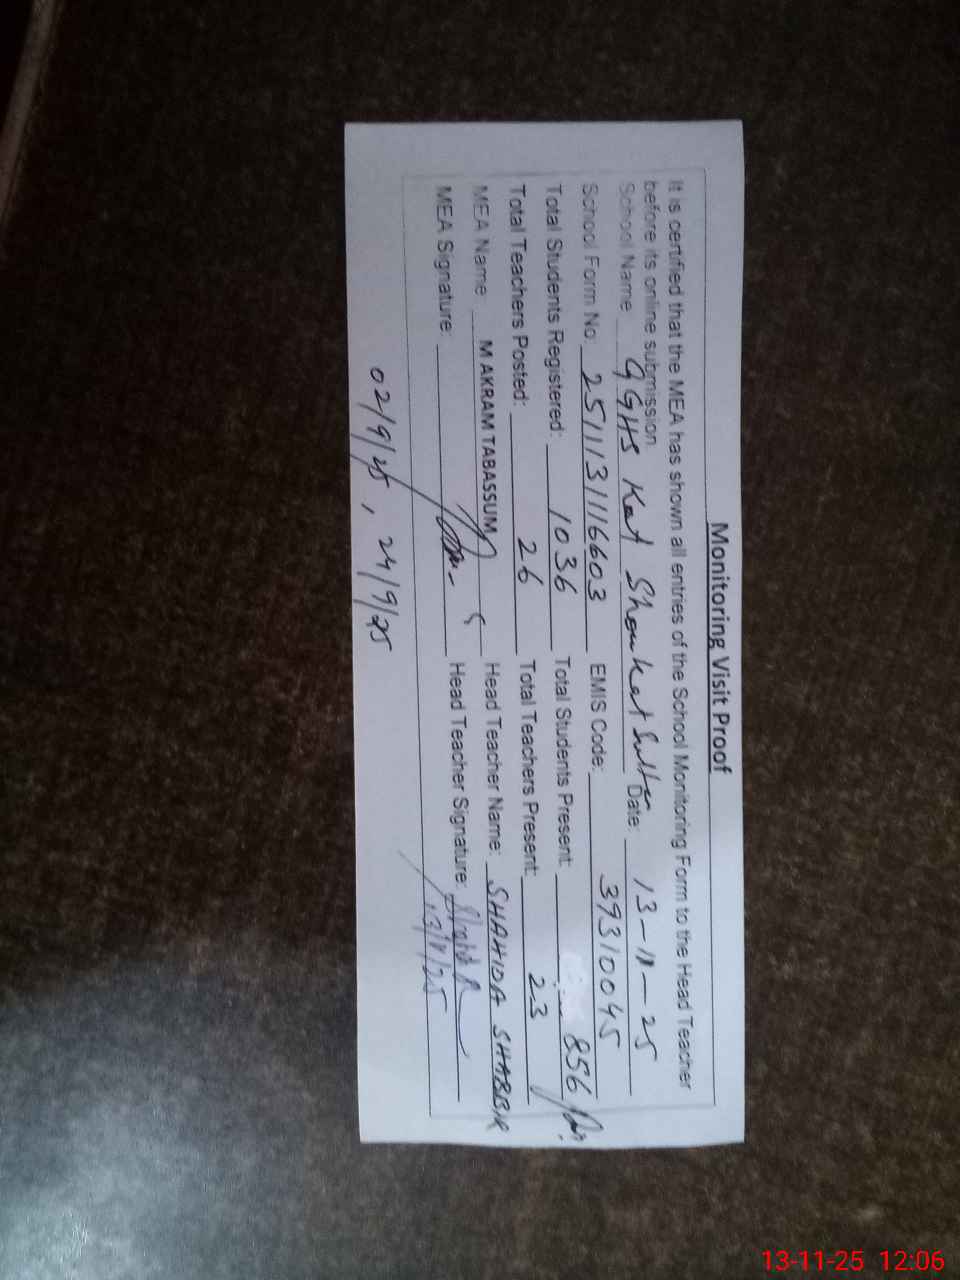 Monitoring Visit Proof
It is certified that the MEA has shown all entries of the School Monitoring Form to the Head Teacher
before its online submission.
School Name GGHS Kot Shoukat Sultan Date: 13-11-25
School Form No: 2511131116603 EMIS Code: 39310045
Total Students Registered: 1036 Total Students Present: 856
Total Teachers Posted: 26 Total Teachers Present: 23
MEA Name: M AKRAM TABASSUM Head Teacher Name: SHAHIDA SHABBIR
MEA Signature: Head Teacher Signature:
13/11/25
02/9/25, 24/9/25
13-11-25 12:06